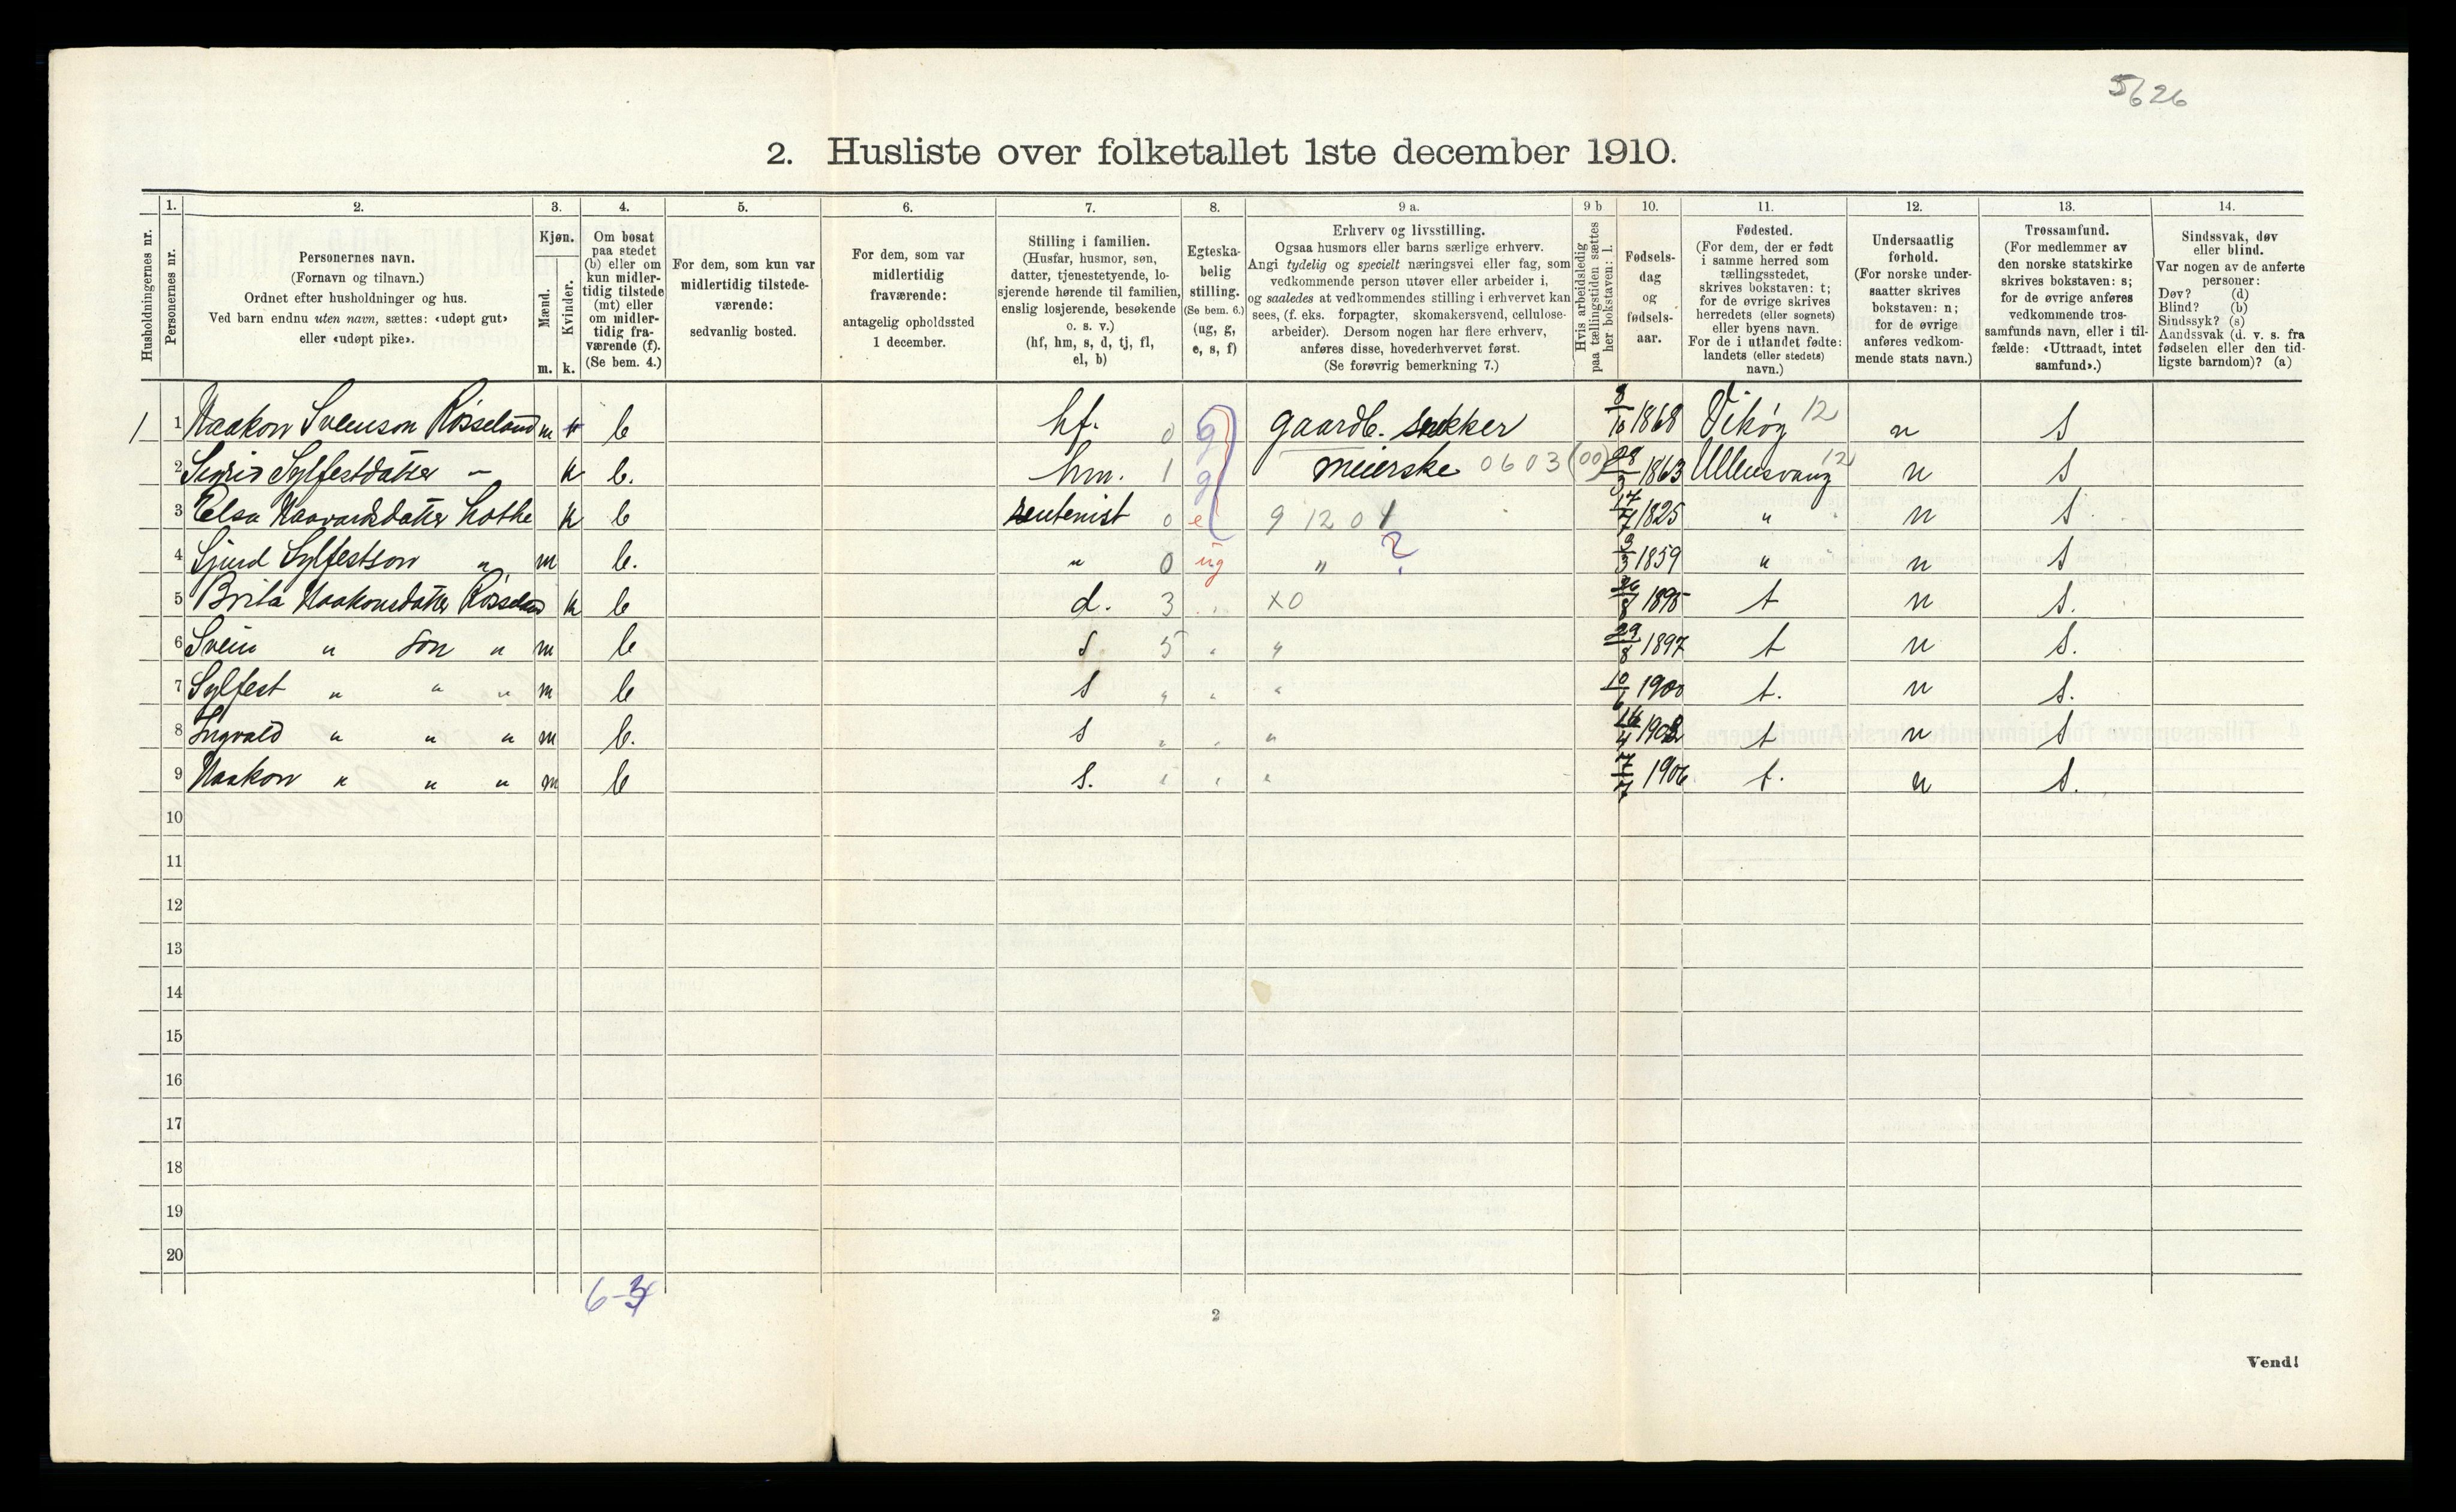 5/6 26
2. Husliste over folketallet 1ste december 1910.
Husholdningernes nr.
1. Personernes nr.
2.
Personernes navn.
(Fornavn og tilnavn.)
Ordnet efter husholdninger og hus.
Ved barn endnu uten navn, sættes: «udøpt gut»
eller «udøpt pike».
3.
Kjøn.
Mænd. Kvinder.
m. k.
4.
Om bosat
paa stedet
(b) eller om
kun midler-
tidig tilstede
(mt) eller
om midler-
tidig fra-
værende (f).
(Se bem. 4.)
5.
For dem, som kun var
midlertidig tilstede-
værende:
sedvanlig bosted.
6.
For dem, som var
midlertidig
fraværende:
antagelig opholdssted
1 december.
7.
Stilling i familien.
(Husfar, husmor, søn,
datter, tjenestetyende, lo-
sjerende hørende til familien,
enslig losjerende, besøkende
o. s. v.)
(hf, hm, s, d, tj, fl,
el, b)
8.
Egteska-
belig
stilling.
(Se bem. 6.)
(ug, g,
e, s, f)
9 a.
Erhverv og livsstilling.
Ogsaa husmors eller barns særlige erhverv.
Angi tydelig og specielt næringsvei eller fag, som
vedkommende person utøver eller arbeider i,
og saaledes at vedkommendes stilling i erhvervet kan
sees, (f. eks. forpagter, skomakersvend, cellulose-
arbeider). Dersom nogen har flere erhverv,
anføres disse, hovederhvervet først.
(Se forøvrig bemerkning 7.)
9 b
Hvis arbeidsledig
paa tællingstiden sættes
her bokstaven: l.
10.
Fødsels-
dag
og
fødsels-
aar.
11.
Fødested.
(For dem, der er født
i samme herred som
tællingsstedet,
skrives bokstaven: t;
for de øvrige skrives
herredets (eller sognets)
eller byens navn.
For de i utlandet fødte:
landets (eller stedets)
navn.)
12.
Undersaatlig
forhold.
(For norske under-
saatter skrives
bokstaven: n;
for de øvrige
anføres vedkom-
mende stats navn.)
13.
Trossamfund.
(For medlemmer av
den norske statskirke
skrives bokstaven: s;
for de øvrige anføres
vedkommende tros-
samfunds navn, eller i til-
fælde: «Uttraadt, intet
samfund».)
14.
Sindssvak, døv
eller blind.
Var nogen av de anførte
personer:
Døv? (d)
Blind? (b)
Sindssyk? (s)
Aandssvak (d. v. s. fra
fødselen eller den tid-
ligste barndom)? (a)
1 1 Haakon Svenson Rösseland m b hf. 0 g gaardb. snekker 8/10 1868 Vikøy 12 n s
2 Sigrid Sylfestdatter — k b. hm. 1 g meierske 0603 (00) 28/3 1863 Ullensvang 12 n s
3 Elsa Haavardsdatter Lothe k b rentenist 0 e 9 12 0 1 17/4 1825 " n s
4 Sjurd Sylfestson " m b. " 0 ug " ? 3/3 1859 " n s
5 Brita Haakonsdatter Rösseland k b d. 3 " x0 26/8 1895 t n s.
6 Svein " son " m b s 5 " " 29/8 1897 t n s.
7 Sylfest " " " m b s " " " 10/6 1900 t. n s.
8 Ingvald " " " m b. s " " " 16/4 1902 t n s
9 Haakon " " " m b s. " " " 17/7 1906 t. n s.
10
11
12
13
14
15
16
17
18
19
20
6-3
2
Vend!